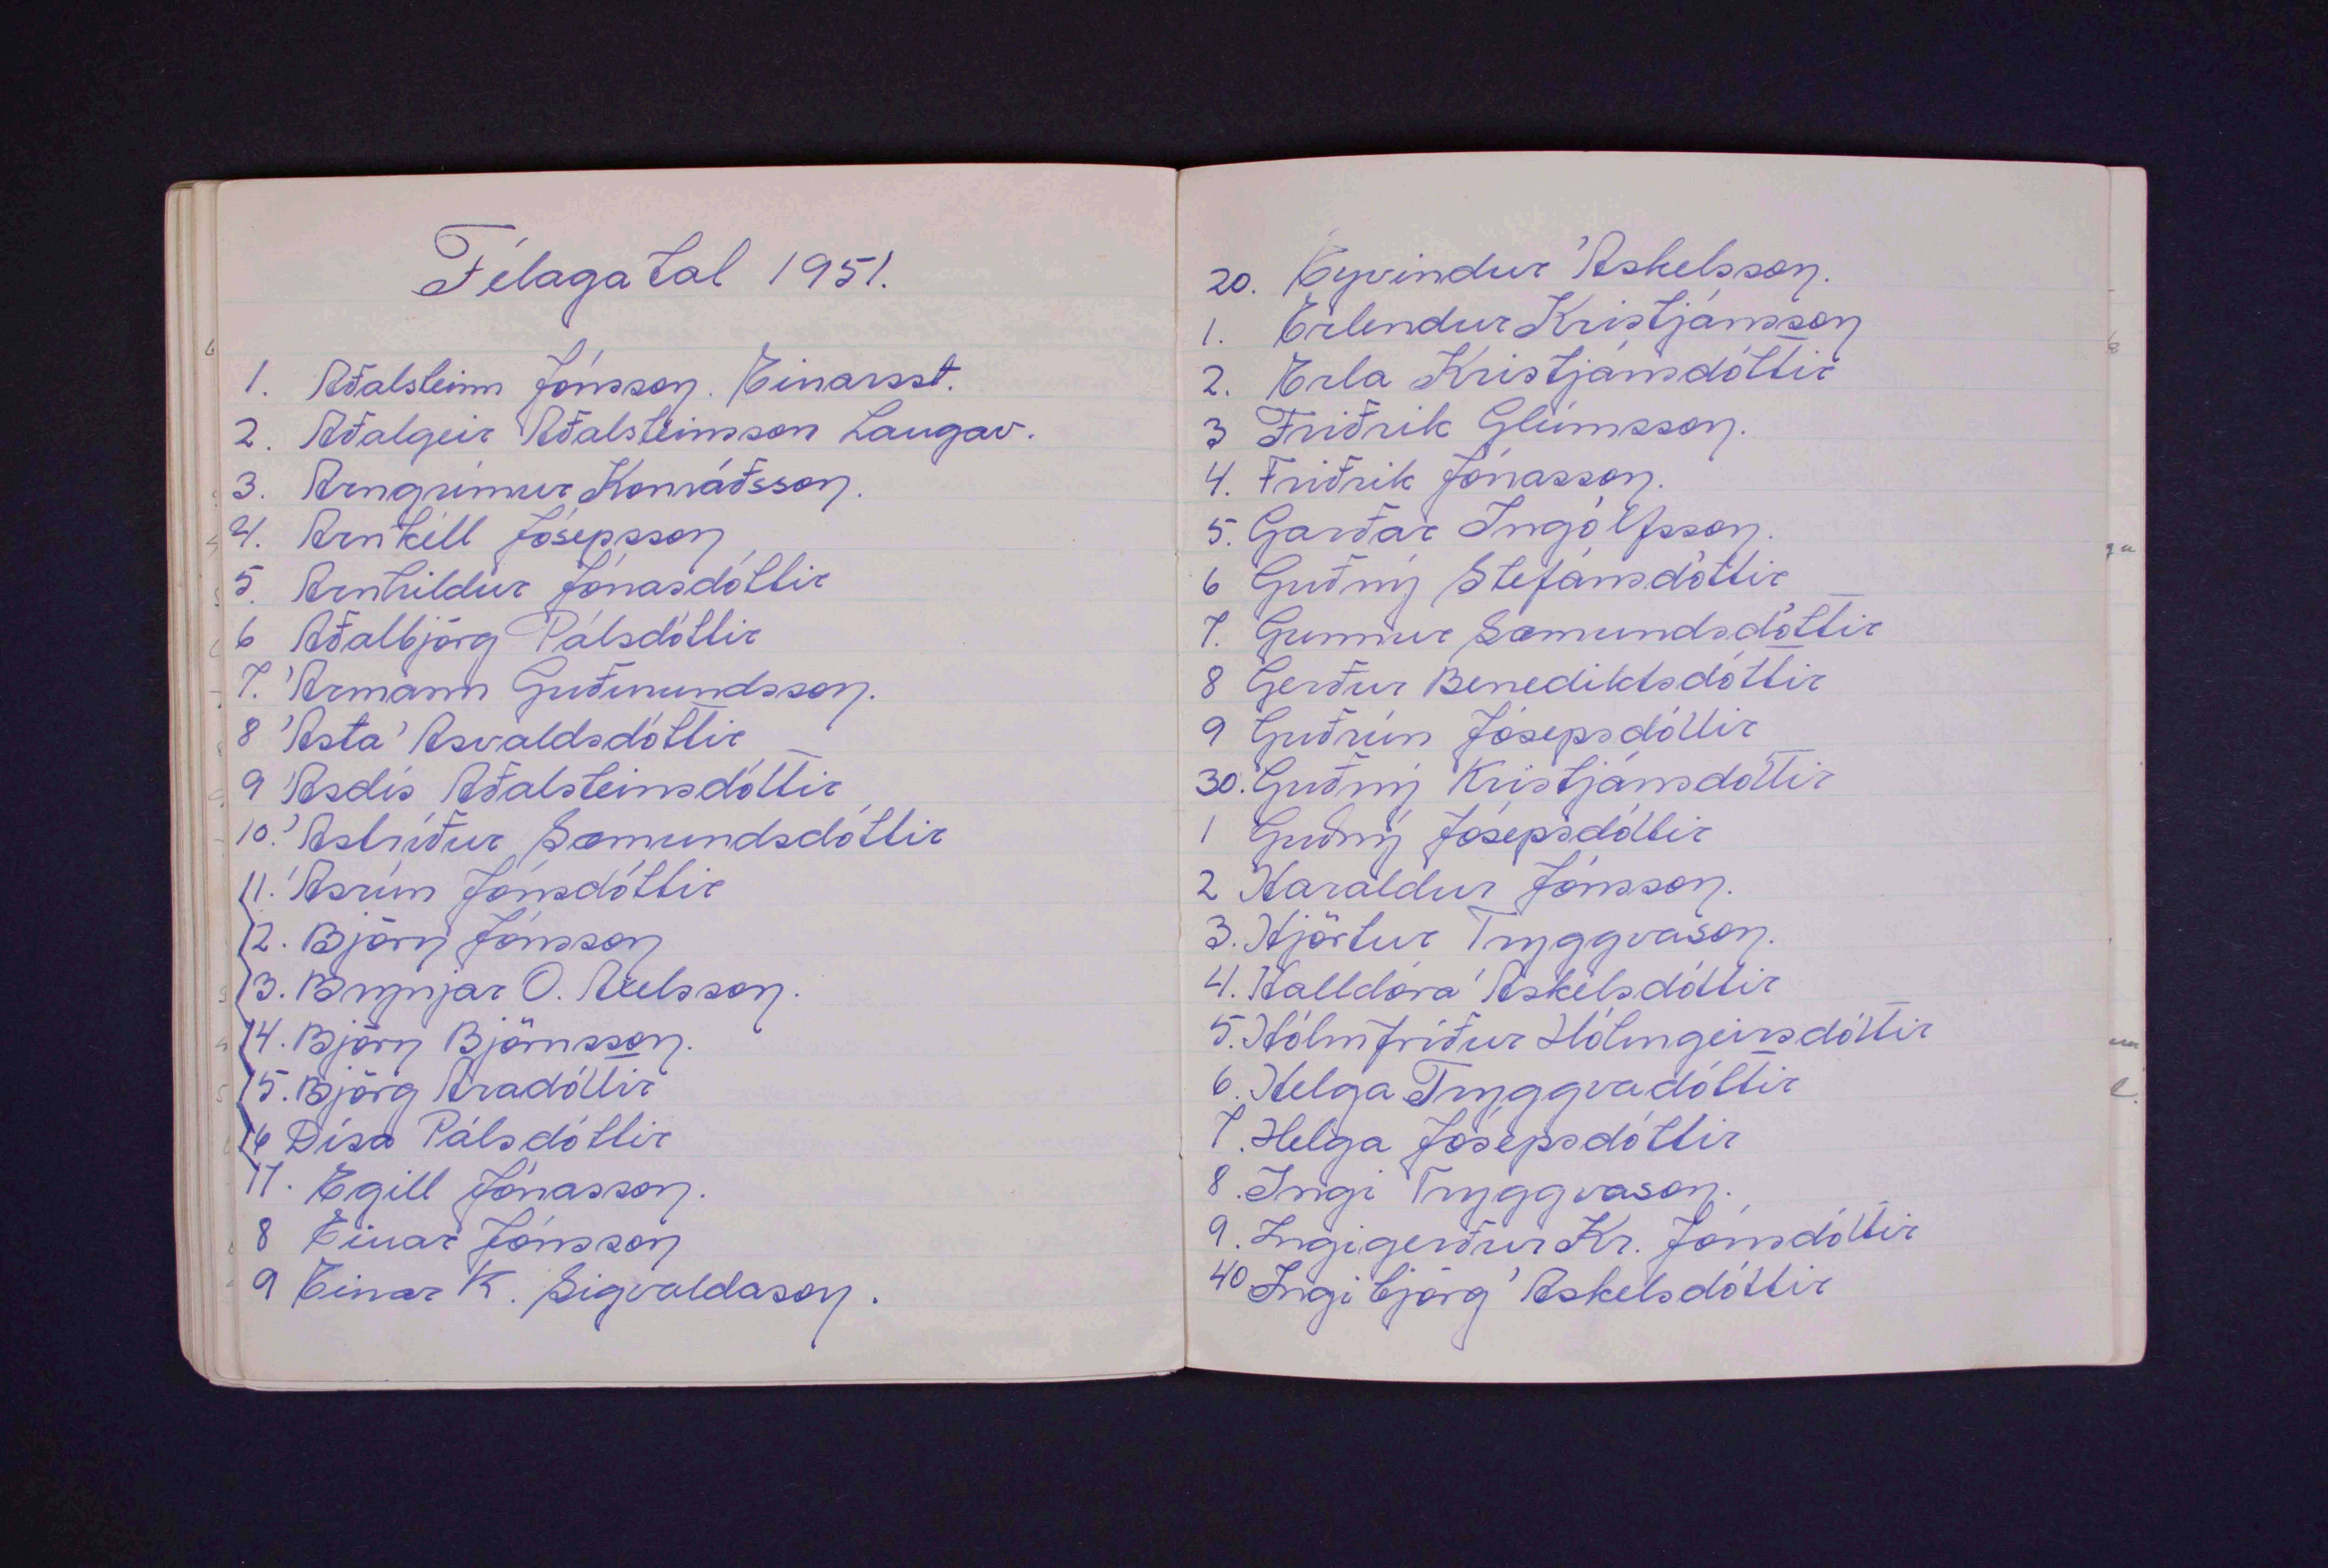 Félagatal 1951.
1. Aðalsteinn Jónsson. Einarsst.
2. Aðalgeir Aðalsteinsson Laugav.
3. Arngrímur Konráðsson.
4. Arnkell Jósepsson
5. Arnhildur Jónasdóttir
6 Aðalbjörg Pálsdóttir
7. Ármann Guðmundsson.
8 Ásta Ásvaldsdóttir
9 Ásdís Aðalsteinsdóttir
10. Ástríður Sæmundsdóttir
11. Ásrún Jónsdóttir
12. Björn Jónsson
13. Brynjar O. Axelsson.
14. Björn Björnsson.
15. Björg Aradóttir
16 Dísa Pálsdóttir
17. Egill Jónasson.
8 Einar Jónsson
9 Einar K. Sigvaldason.
20. Eyvindur Áskelsson.
1. Erlendur Kristjánsson
2. Erla Kristjánsdóttir
3 Friðrik Glúmsson.
4. Friðrik Jónasson.
5. Garðar Ingólfsson.
6 Guðný Stefánsdóttir
7. Gunnur Sæmundsdóttir
8 Gerður Benediktsdóttir
9 Guðrún Jósepsdóttir
30. Guðný Kristjánsdóttir
1 Guðný Jósepsdóttir
2 Haraldur Jónsson.
3. Hjörtur Tryggvason.
4. Halldóra Áskelsdóttir
5. Hólmfríður Hólmgeirsdóttir
6. Helga Tryggvadóttir
7. Helga Jósepsdóttir
8. Ingi Tryggvason.
9. Ingigerður Kr. Jónsdóttir
40 Ingibjörg Áskelsdóttir